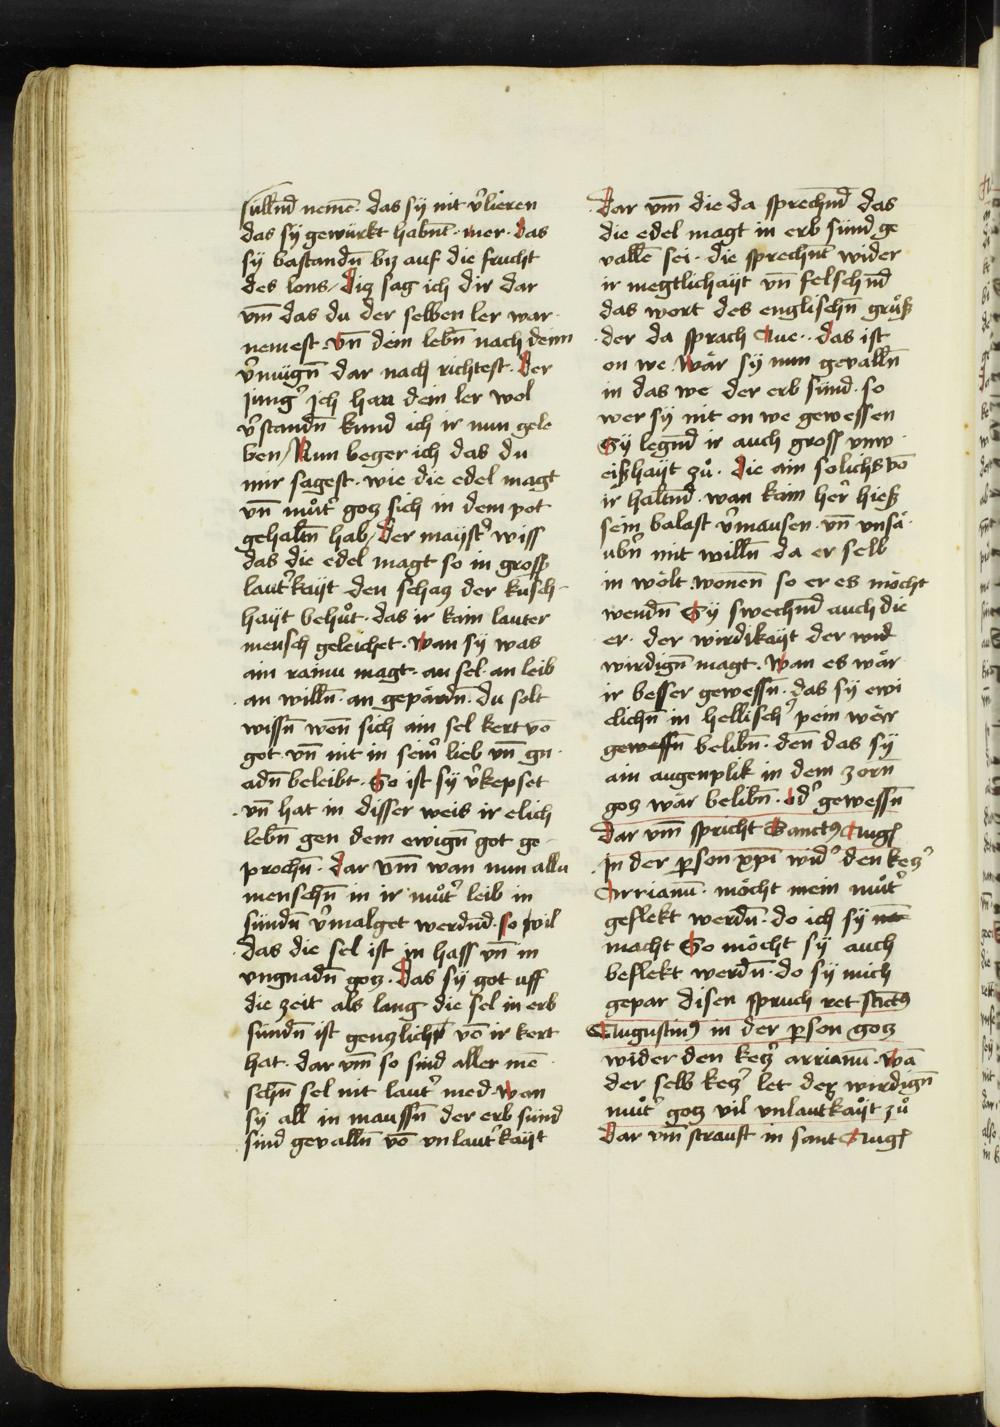 sullnd neme͂. das sÿ nit v̓lieren
das sÿ gewürkt habnt. mer. das
sÿ bastandn̄ biz auf die frucht
des lons / diz sag ich dir dar
vm̄ das du der selben ler war
nemest. vn̄ dein lebn̄ nach denn
v̓mügn̄ dar nach richtest. Der
Jung̓ ich han dein ler wol
v̓standn̄ kund ich ir nun gele
ben / Nun beger ich das du
mir sagest. wie die edel magt
vn̄ mu̇t̓ gotz sich in dem pot
gehaltn̄ hab / der mayst̓ wiss
das die edel magt so in gross
laut̓kayt den schatz der kusch
hayt behu̇t. das ir kain lauter
mensch geleichet. wan sÿ was
ain rainu magt. an sel. an leib
an willn̄. an gepärdn̄. du solt
wissn̄ wen̄ sich ain sel kert vo͂
got. vn̄ nit in sein̓ lieb vn̄ gn
adn̄ beleibt. So ist sÿ v̓kepset
vn̄ hat in disser weis ir elich
lebn̄ gen dem ewign̄ got ge
prochn̄. dar vm̄ wan nun allu
menschn̄ in ir mu̇t̓ leib in
sündn̄ v̓malget werdnd. so wil
das die sel ist in hass vn̄ in
vngnadn̄ gotz. Das sÿ got uff
die zeit als lang die sel in erb
sündn̄ ist genzlich vo͂ ir kert
hat. dar vm̄ so sind aller me͂
schn̄ sel nit laut̓ med. wan
sÿ all in maussn̄ der erb sünd
sind gevalln̄ vo͂ vnlaut̓kayt
Dar vm̄ die da sprechnd das
die edel magt in erb sünd ge
valle͂ sei. die sprechnt wider
ir megtlichayt vn̄ felschnd
das wort des englischn̄ gru̇ß
der da sprach Aue. das ist
on we. wär sÿ nun gevalln̄
in das we der erb sünd. so
wer sÿ nit on we gewessen
Sÿ legnd ir auch gross vnw
eißhayt zu̇. die ain solichs vo͂
ir haltnd. wan kain her̓ hieß
sein balast v̓mausen. vn̄ vnsä
ubn̄ mit willn̄ da er selb
in wölt wonen̄ so er es möcht
wendn̄ Sÿ swechnd auch die
er. der wirdikayt der wid
wirdign̄ magt. wan es wär
ir besser gewessn̄. das sÿ ewi
clichn̄ in hellisch̓ pein wer
gewessn̄ belibn̄. den̄ das sÿ
ain augenplik in dem zorn̄
gotz wär belibn̄. od̓ gewessn̄
Dar vm̄ spricht Sanctꝰ Augꝭ
In der p̱son xp̄i wid̓ den ketz̓
Arrianū. möcht mein mu̇t̓
geflekt werdn̄. do ich sÿ
macht So möcht sÿ auch
beflekt werdn̄. do sÿ mich
gepar disen spruch ret sanctꝰ
Augustinꝰ in der p̱son gotz
wider den ketz̓ arrianū. wa͂
der selb ketz̓ let der wirdign̄
mu̇t̓ gotz vil vnlaut̓kayt zu̇
Dar vm̄ strauft in sant Augꝭ